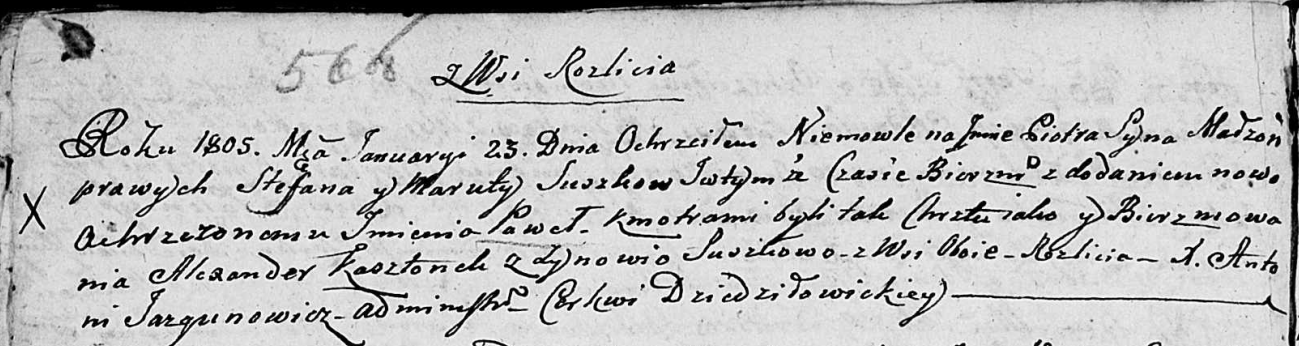 566
z Wsi Rozlicia
Roku 1805. Mca Januaryi 23. Dnia Ochrzciłem Niemowle na Jmie Piotra Syna Madzoń
X prawych Stefana y Maruły Suszkow Jwtymże Czasie Bierzmo z dodaniem nowo
Ochrzczonemu Jmienia Paweł. Kmotrami byli tak Chrztu jako y Bierzmowa
nia Alexander Kasztonek z Zynowio Suszkowo - z Wsi Oboie - Rozlicia - X. Anto
ni Jazgunowicz - administr Cerkwi Dziedziłowickiey